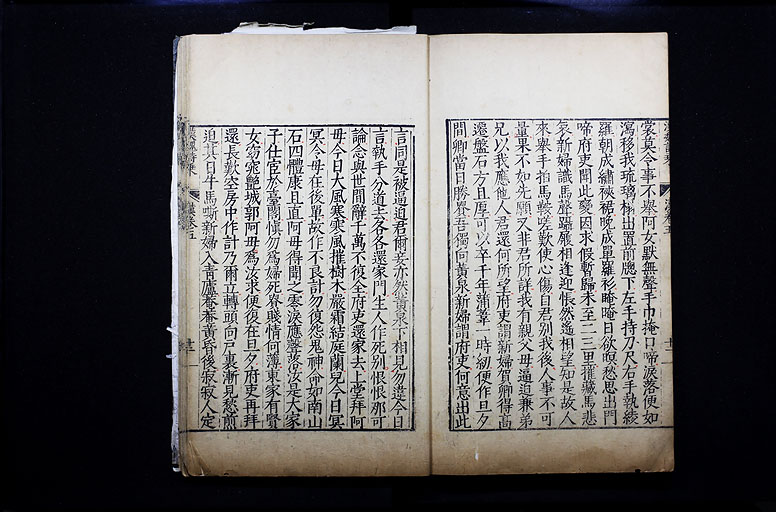 裳莫令事不舉阿女默無聲手巾掩口啼淚落便如
瀉移我琉璃榻出置前牎下左手持刀尺右手執綾
羅朝成繡裌裙晚成單羅衫晻晻日欲暝愁思出門
啼府吏聞此變因求假暫歸未至二三里摧藏馬悲
哀新婦識馬聲躡履相逢迎悵然遙相望知是故人
來舉手拍馬鞍嗟歎使心傷自君別我後人事不可
量果不如先願又非君所詳我有親父母逼迫兼弟
兄以我應他人君還何所望府吏謂新婦賀卿得高
遷盤石方且厚可以卒千年蒲葦一時紉便作旦夕
間卿當日勝貴吾獨向黃泉新婦謂府吏何意出此
言同是被逼迫君爾妾亦然黃泉下相見勿違今日
言執手分道去各各還家門生人作死別恨恨那可
論念與世間辭千萬不復全府吏還家去上堂拜阿
母今日大風寒寒風摧樹木嚴霜結庭蘭兒今日冥
冥令母在後單故作不良計勿復怨鬼神命如南山
石四體康且直阿母得聞之零淚應聲落汝是大家
子仕宦於臺閣慎勿爲婦死貴賤情何薄東家有賢
女窈窕艷城郭阿母爲汝求便復在旦夕府吏再拜
還長歎空房中作計乃爾立轉頭向戶裏漸見愁煎
迫其日牛馬嘶新婦入青廬菴菴黃昏後寂寂人定